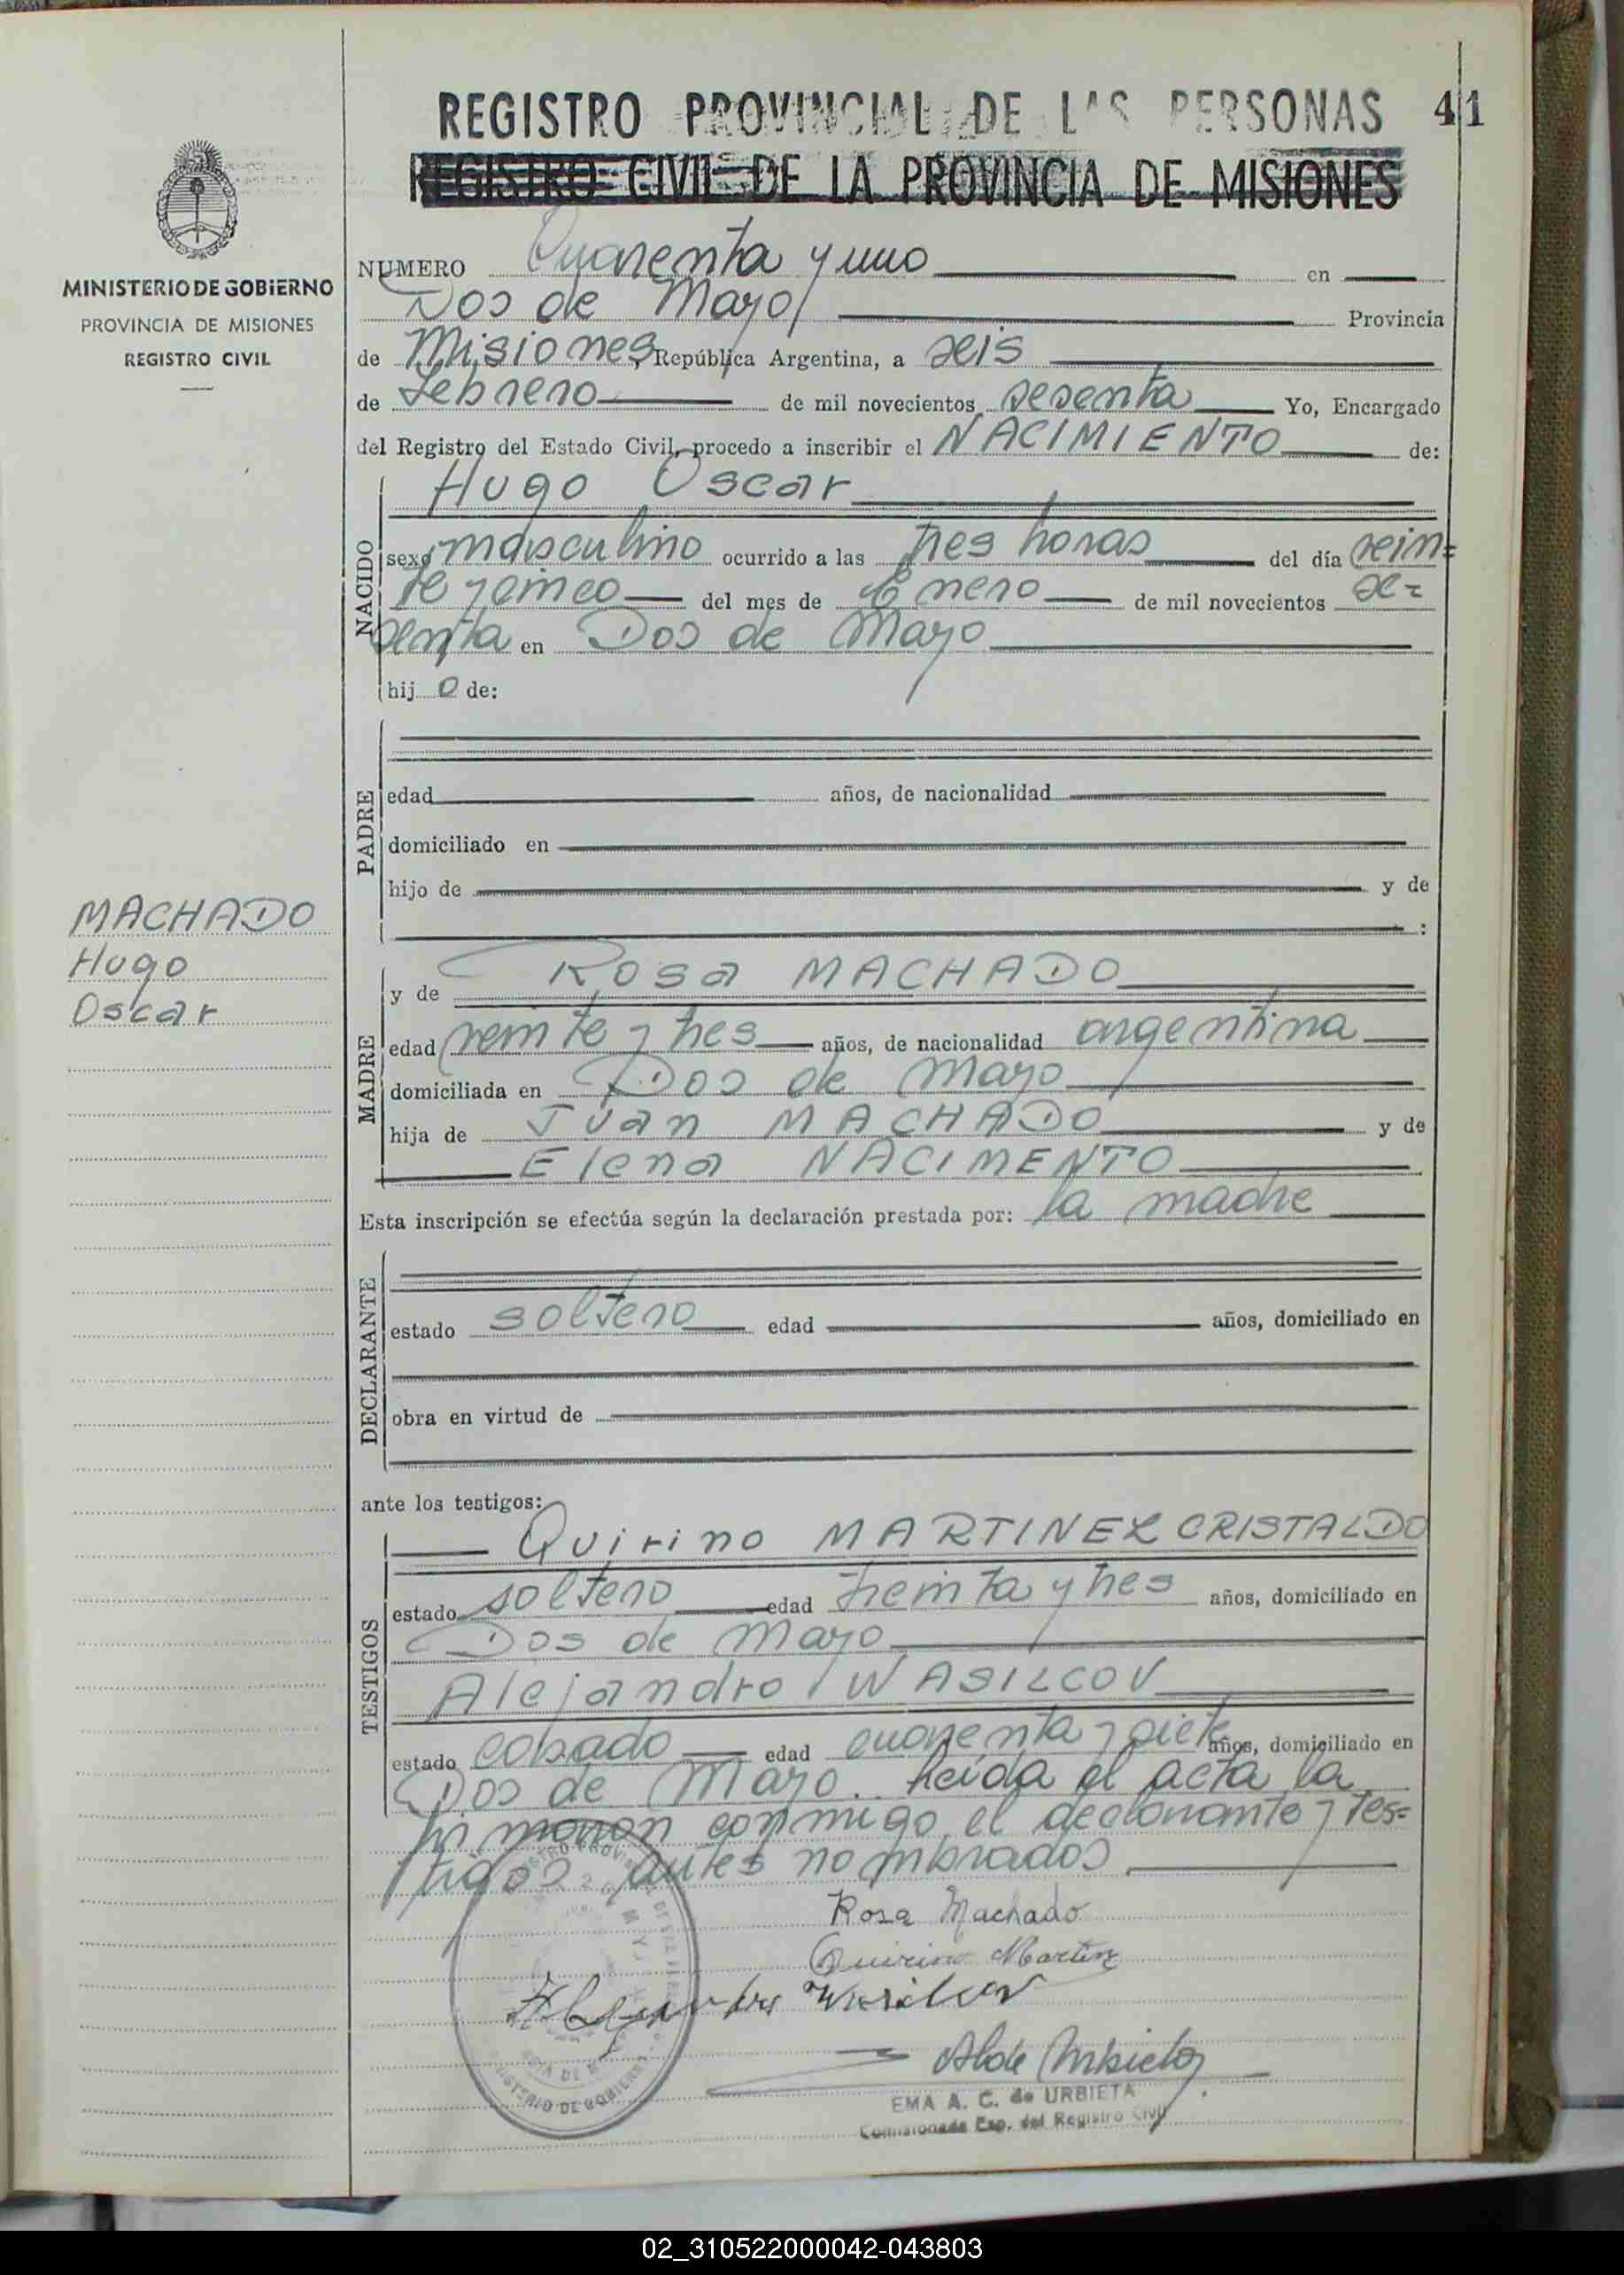 REGISTRO PROVINCIAL DE LAS PERSONAS 41
REGISTRO CIVIL DE LA PROVINCIA DE MISIONES
MINISTERIO DE GOBIERNO
PROVINCIA DE MISIONES
REGISTRO CIVIL
NUMERO Cuarenta y uno en
Dos de Mayo Provincia
de Misiones, República Argentina, a seis
de Febrero de mil novecientos sesenta Yo, Encargado
del Registro del Estado Civil, procedo a inscribir el NACIMIENTO de:
NACIDO
Hugo Oscar
sexo masculino ocurrido a las tres horas del día vein=
te y cinco del mes de Enero de mil novecientos se=
senta en Dos de Mayo
hijo de:
PADRE
edad años, de nacionalidad
domiciliado en
hijo de y de
:
MACHADO
Hugo
Oscar
MADRE
y de Rosa MACHADO
edad veinte y tres años, de nacionalidad argentina
domiciliada en Dos de Mayo
hija de Juan MACHADO y de
Elena NACIMENTO
Esta inscripción se efectúa según la declaración prestada por: la madre
DECLARANTE
estado soltero edad años, domiciliado en
obra en virtud de
ante los testigos:
TESTIGOS
Quirino MARTINEZ CRISTALDO
estado soltero edad treinta y tres años, domiciliado en
Dos de Mayo
Alejandro WASILCOV
estado casado edad cuarenta y siete años, domiciliado en
Dos de Mayo. Leída el acta la
firmaron conmigo, el declarante y tes=
tigos antes nombrados
Rosa Machado
Quirino Martinz
EMA A. C. de URBIETA
Comisionada Esp. del Registro Civil
02_310522000042-043803